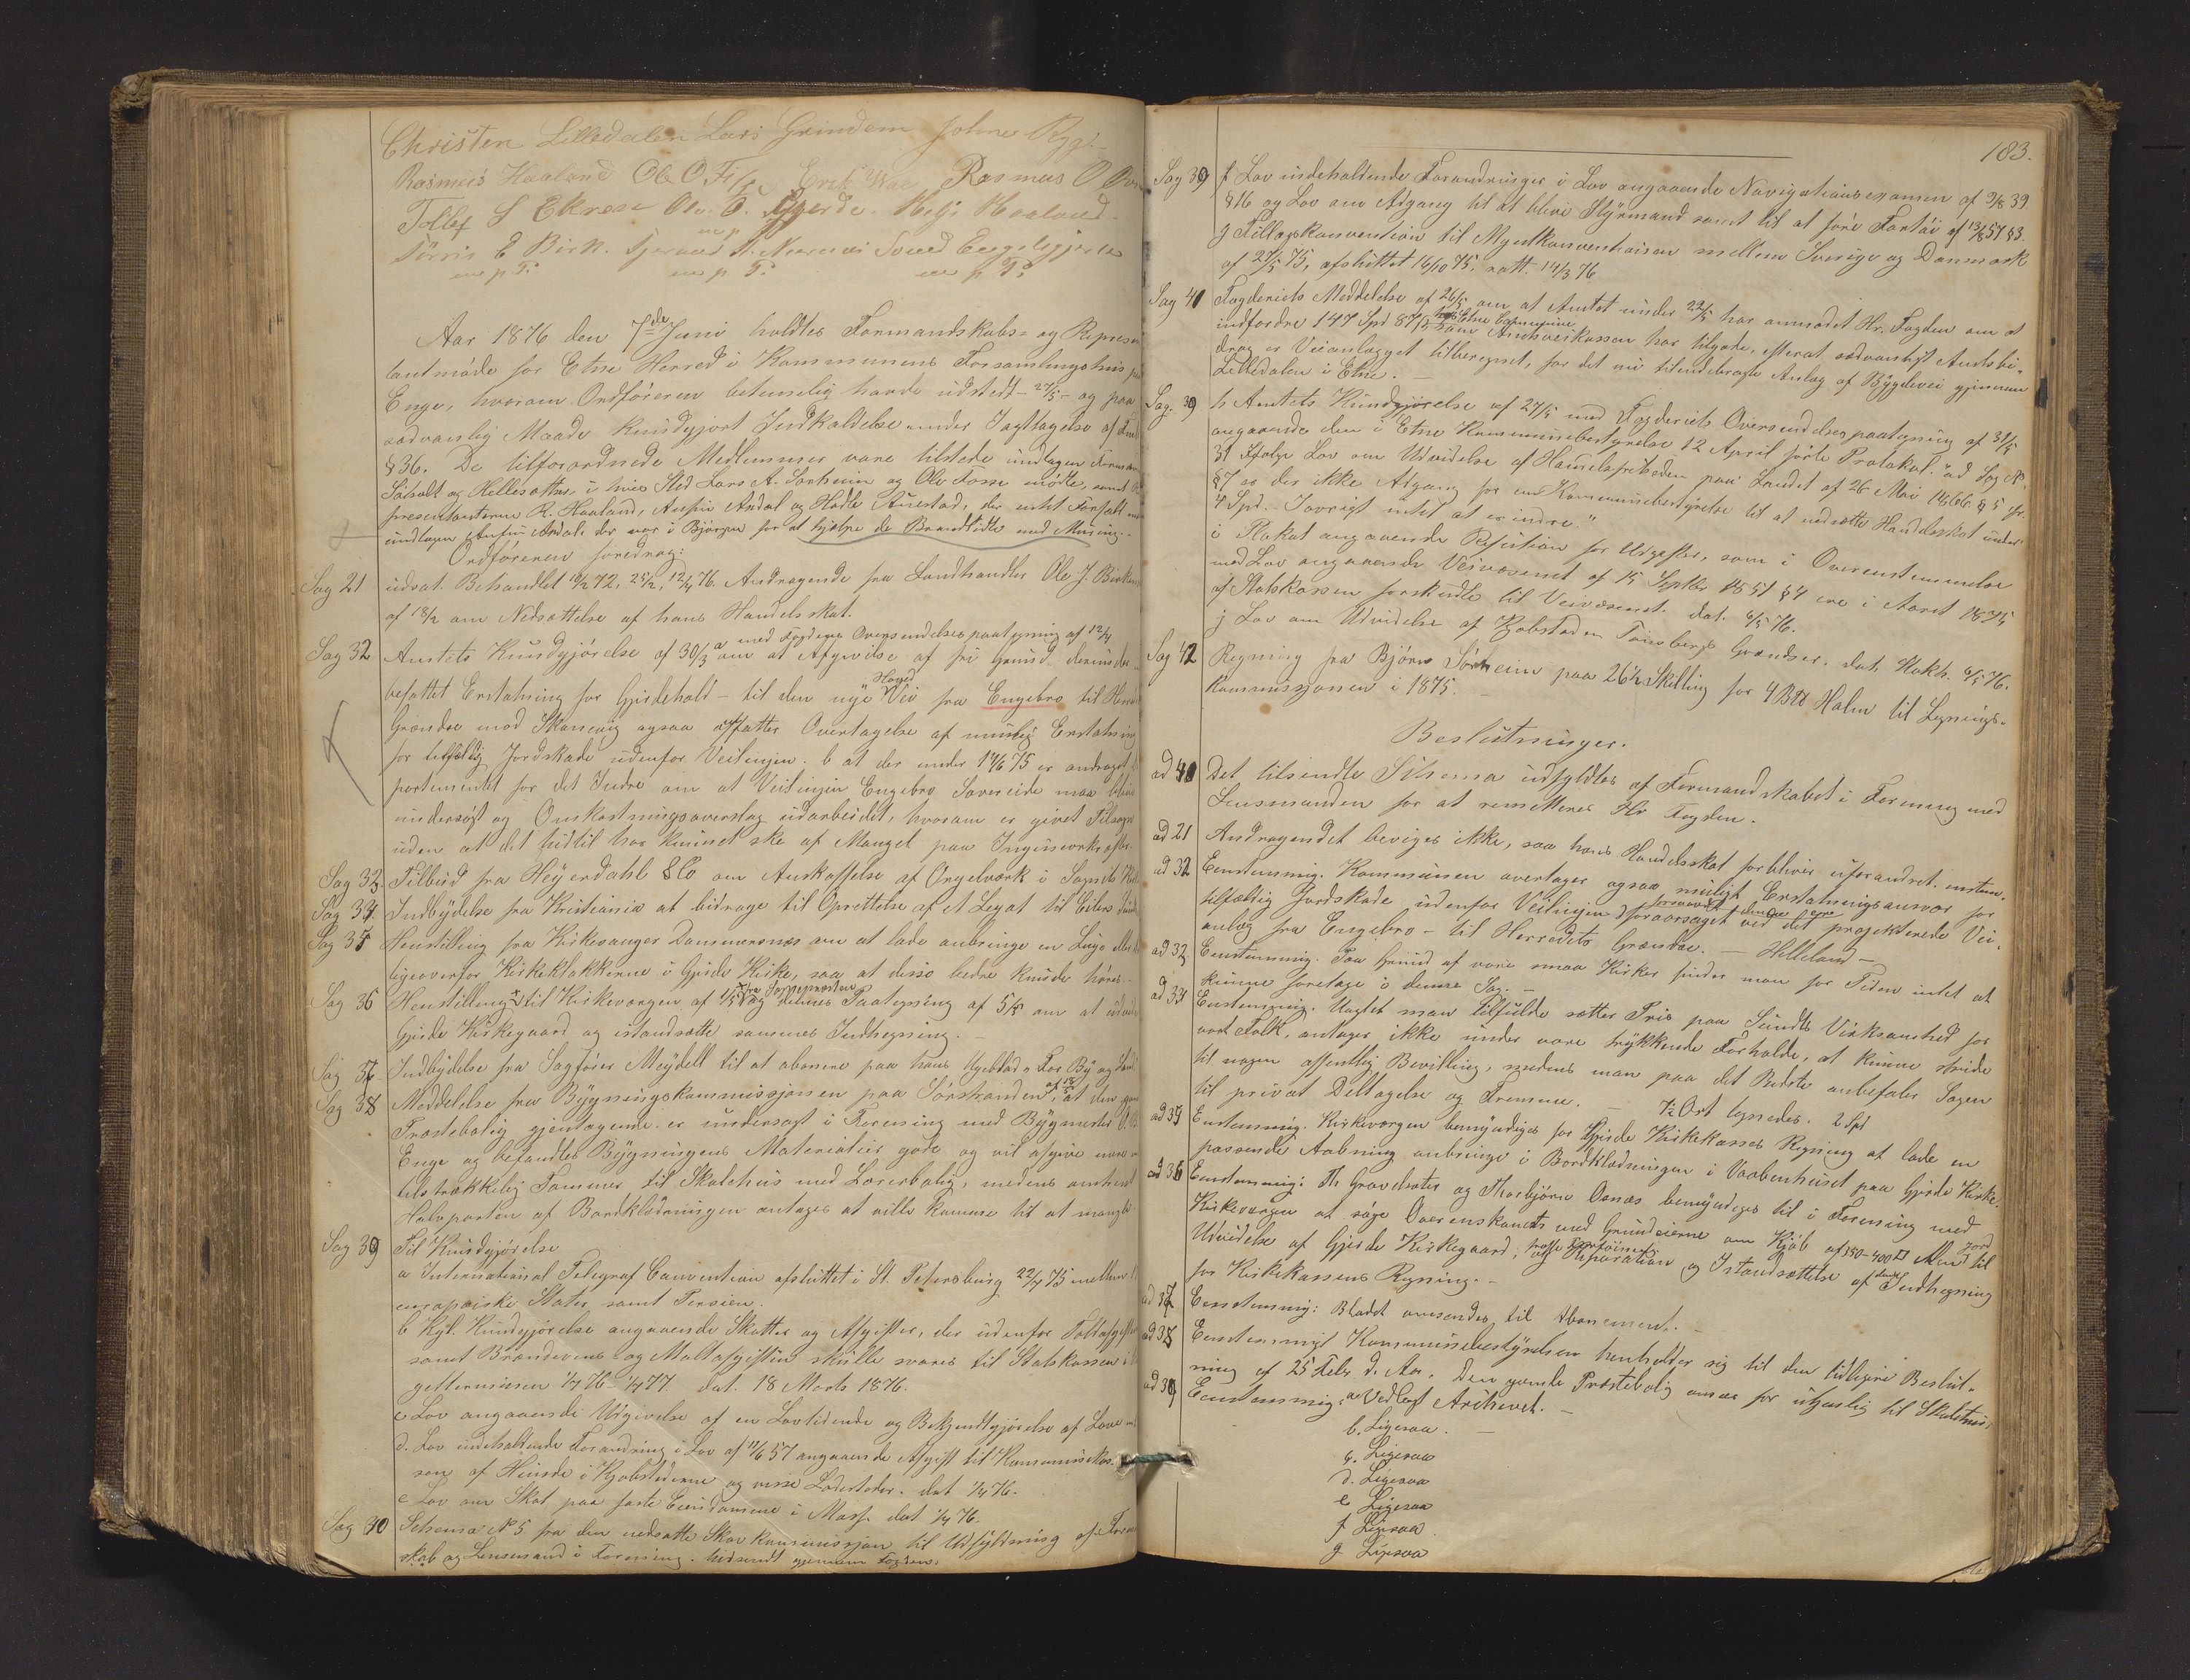 Christen Lilledalen Lars Grindem Johne Rygg
Rasmus Haaland Ole O. Erik Rasmus O
Tollef S Ekrene Ole O. Gjerde. Helje Haaland.
Tørris E Birk.
m p. P. m p. P. m p. P.
Aar 1876 den 7de Juni holdtes Formandskabs- og Represen
tantmøde for Etne Herred i Kommunens Forsamlingshus paa
Enge, hvorom Ordføreren betimelig havde udstedt 27/5 og paa
sædvanlig Maade kundgjort Indkaldelse under Iagttagelse af
§ 36. De tilforordnede Medlemmer vare tilstede undtagen
og i hvis Sted Lars A. Sørheim og Ole Fosse mødte, samt
presentanterne R. Haaland, Anfin Ardal og Hadle Austad, der intet Forfald
undtagen Anfin Ardal, der var i Bjørgen for at hjælpe de Brandlidte med Muring.
Ordføreren foredrog:
Sag 21 udsat. Behandlet 16/2 72, 25/2, 12/4 76. Andragende fra Landhandler Ole J. Birkeland
af 18/2 om Nedsættelse af hans Handelsskat.
med Fogdens Oversendelsespaategning af 12/4
Sag 32 Amtets Kundgjørelse af 30/3 a om at Afgivelse af fri Grund derunder
befattet Erstatning for Gjærdehold - til den nye Hoved Vei fra Engebro til Herreds
Grændse mod Skonevig ogsaa affatter Overtagelse af mulig Erstatning
for tilfældig Jordskade udenfor Veilinjen. b at der under 14/6 75 er andraget
partementet for det Indre om at Veilinjen Engebro Sævereide maa blive
undersøgt og Omkostningsoverslag udarbeidet, hvorom er givet Tilsagn
uden at det hidtil har kunnet ske af Mangel paa Ingeniørkræfter.
Sag 33 Tilbud fra Heyerdahl & Co om Anskaffelse af Orgelværk i Sognets
Sag 34 Indbydelse fra Kristiania at bidrage til Oprettelse af et Legat til Eilert Sundt
Sag 35 Henstilling fra Kirkesanger Dammersnæs om at lade anbringe en Luge
ligeoverfor Kirkeklokkerne i Gjerde Kirke, saa at disse bedre kunde høres.
Sag 36 Henstilling fra Sognepræsten til Kirkevergen af 1/5 og dennes Paategning af 5/5 om at udvide
Gjerde Kirkegaard og istandsætte sammes Indhegning.
Sag 37 Indbydelse fra Sagfører Meydell til at abonere paa hans Ugeblad "For By og Land
Sag 38 Meddelelse fra Bygningskommissjonen paa Sørstranden af at den gamle
Præstebolig gjentagende er undersøgt i Forening med Bygmester O.
Enge og befandtes Bygningens Materialier gode og vil afgive mere
tilstrækkelig Tømmer til Skolehus med Lærerbolig, medens omtrent
Halvparten af Bordklædningen antages at ville komme til at mangle.
Sag 39 Til Kundgjørelse
a International Telegraf Convention afsluttet i St. Petersburg 22/7 75 mellem
europæiske Stater samt Persien.
b Kgl. Kundgjørelse angaaende Skatter og Afgifter, der udenfor Toldafgiften
samt Brændevins og Maltafgiften skulle svares til Statskassen i
getterminen 1/7 76 - 1/7 77. dat. 18 Marts 1876.
c Lov angaaende Udgivelse af en Lovtidende og Bekjendtgjørelse af Love
d. Lov indeholdende Forandring i Lov af 11/6 57 angaaende Afgift til Kommunekas-
sen af Hunde i Kjøbstæderne og visse Ladesteder. dat 1/4 76.
e Lov om Skat paa faste Eiendomme i Moss. dat 1/4 76.
Sag 40 Schema № 5 fra den nedsatte Skovkommissjon til Udfyldning af
skab og Lensmand i Forening. tilsendt gjennem Fogden.
183.
Sag 39 f Lov indeholdende Forandringer i Lov angaaende Navigationsexamen af 3/8 39
§ 16 og Lov om Adgang til at blive Styrmand samt til at føre Fartøi af 13/8 57 § 3.
g Tillægskonvention til Myntkonventionen mellem Sverige og Danmark
af 27/5 75, afsluttet 16/10 75. ratt. 14/3 76
Sag 41 Fogderiets Meddelelse af 26/5 om at Amtet under 22/5 har anmodet Hr. Fogden om at
indfordre 147 Spd 87 ß som Etne Commune Amtsveikassen har tilgode, efterat sædvanligt Amtsbi-
drag er Veianlægget tilberegnet, for det nu tilendebragte Anlæg af Bygdevei gjennem
Lilledalen i Etne.
Sag. 39 h Amtets Kundgjørelse af 27/5 med Fogderiets Oversendelsespaategning af 31/5
angaaende den i Etne Kommunebestyrelse 12 April førte Protokol. "ad Sag №
31 Ifølge Lov om Udvidelse af Handelsfriheden paa Landet af 26 Mai 1866 § 5 jfr.
§ 7 er der ikke Adgang for en Kommunebestyrelse til at nedsætte Handelsskat under
4 Spd. Iøvrigt intet at erindre."
i Plakat angaaende Refusion for Udgifter, som i Overensstemmelse
med Lov angaaende Veivæsenet af 15 Septbr 1851 § 4 ere i Aaret 1875
af Statskassen forskudte til Veivæsenet. dat. 6/5 76.
j Lov om Udvidelse af Kjøbstaden Tønsbergs Grændser. dat. Stokh. 6/5 76.
Sag 42 Regning fra Bjørn Sørheim paa 26½ Skilling for 4 Halm til Lignings-
kommissjonen i 1875.
Beslutninger.
ad 40 Det tilsendte Schema udfyldtes af Formandskabet i Forening med
Lensmanden for at remitteres Hr Fogden.
ad 21 Andragendet beviges ikke, saa hans Handelsskat forbliver uforandret. enstem.
ad 32 Eenstemmig. Kommunen overtager ogsaa muligt Erstatningsansvar for
tilfældig Jordskade udenfor Veilinjen foraarsaget ved det projekterede Vei-
anlæg fra Engebro - til Herredets Grændse. - Helleland -
ad 33 Eenstemmig. Paa Grund af vore smaa Kirker finder man for Tiden intet at
kunne foretage i denne Sag. -
ad 34 Eenstemmig. Uagtet man tilfulde sætter Pris paa Sundts Virksomhed for
vort Folk, antages ikke under vore trykkende Forholde, at kunne skride
til nogen offentlig Bevilling, medens man paa det Bedste anbefaler Sagen
til privat Deltagelse og Fremme. - ½ Ort tegnedes. 2 Spd
ad 35 Enstemmig. Kirkevergen bemyndiges for Gjerde Kirkekasses Regning at lade en
passende Aabning anbringe i Bordklædningen i Vaabenhuset paa Gjerde Kirke.
ad 36 Eenstemmig: Th. Gravelsæter og Thorbjørn Osnæs bemyndiges til i Forening med
Kirkevergen at søge Overenskomst med Grundeierne om Kjøb af 350-400 □ Alen Jord til
Udvidelse af Gjerde Kirkegaard, træffe Reparation og Istandsættelse af dens Indhegning
for Kirkekassens Regning. -
ad 37 Eenstemmig: Bladet omsendes til Abonement. -
ad 38 Eenstemmigt Kommunebestyrelsen henholder sig til den tidligere Beslut-
ning af 25 Febr d. Aa. Den gamle Præstebolig ansees for utjenlig til Skolehus.
ad 39 Eenstemmig: a Vedlægt Archivet. -
b. Ligesaa. -
c. Ligesaa
d. Ligesaa
e Ligesaa
f Ligesaa.
g Ligesaa